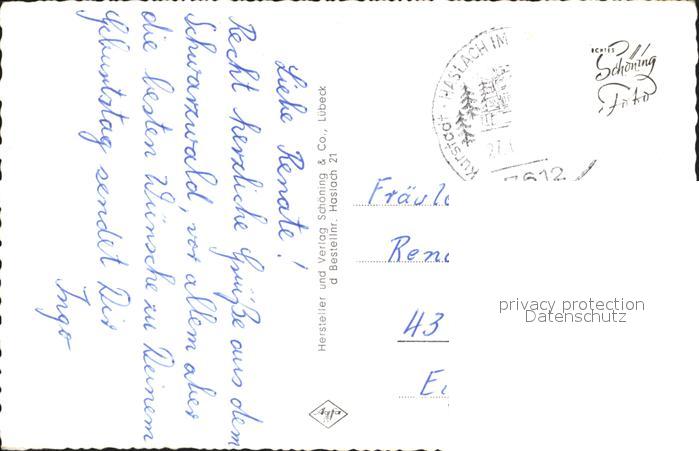 Liebe Renate!
Recht herzliche Grüße aus dem
Schwarzwald, vor allem aber
die besten Wünsche zu Deinem
Geburtstag sendet Dir
Ingo
Hersteller und Verlag Schöning & Co., Lübeck
d Bestellnr. Haslach 21
Agfa
Kurstadt · HASLACH IM
27.
7612
ECHTES
Schöning
Foto
Fräul
Ren
43
E
privacy protection
Datenschutz